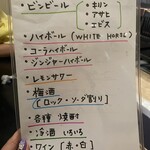 ・ビンビール
・キリン
・アサヒ
・エビス
・ハイボール (WHITE HORSE)
・コーラハイボール
・ジンジャーハイボール
・レモンサワー
・梅酒
(ロック・ソーダ割り)
・各種 焼酎
・冷酒 いろいろ
・ワイン [赤・白]